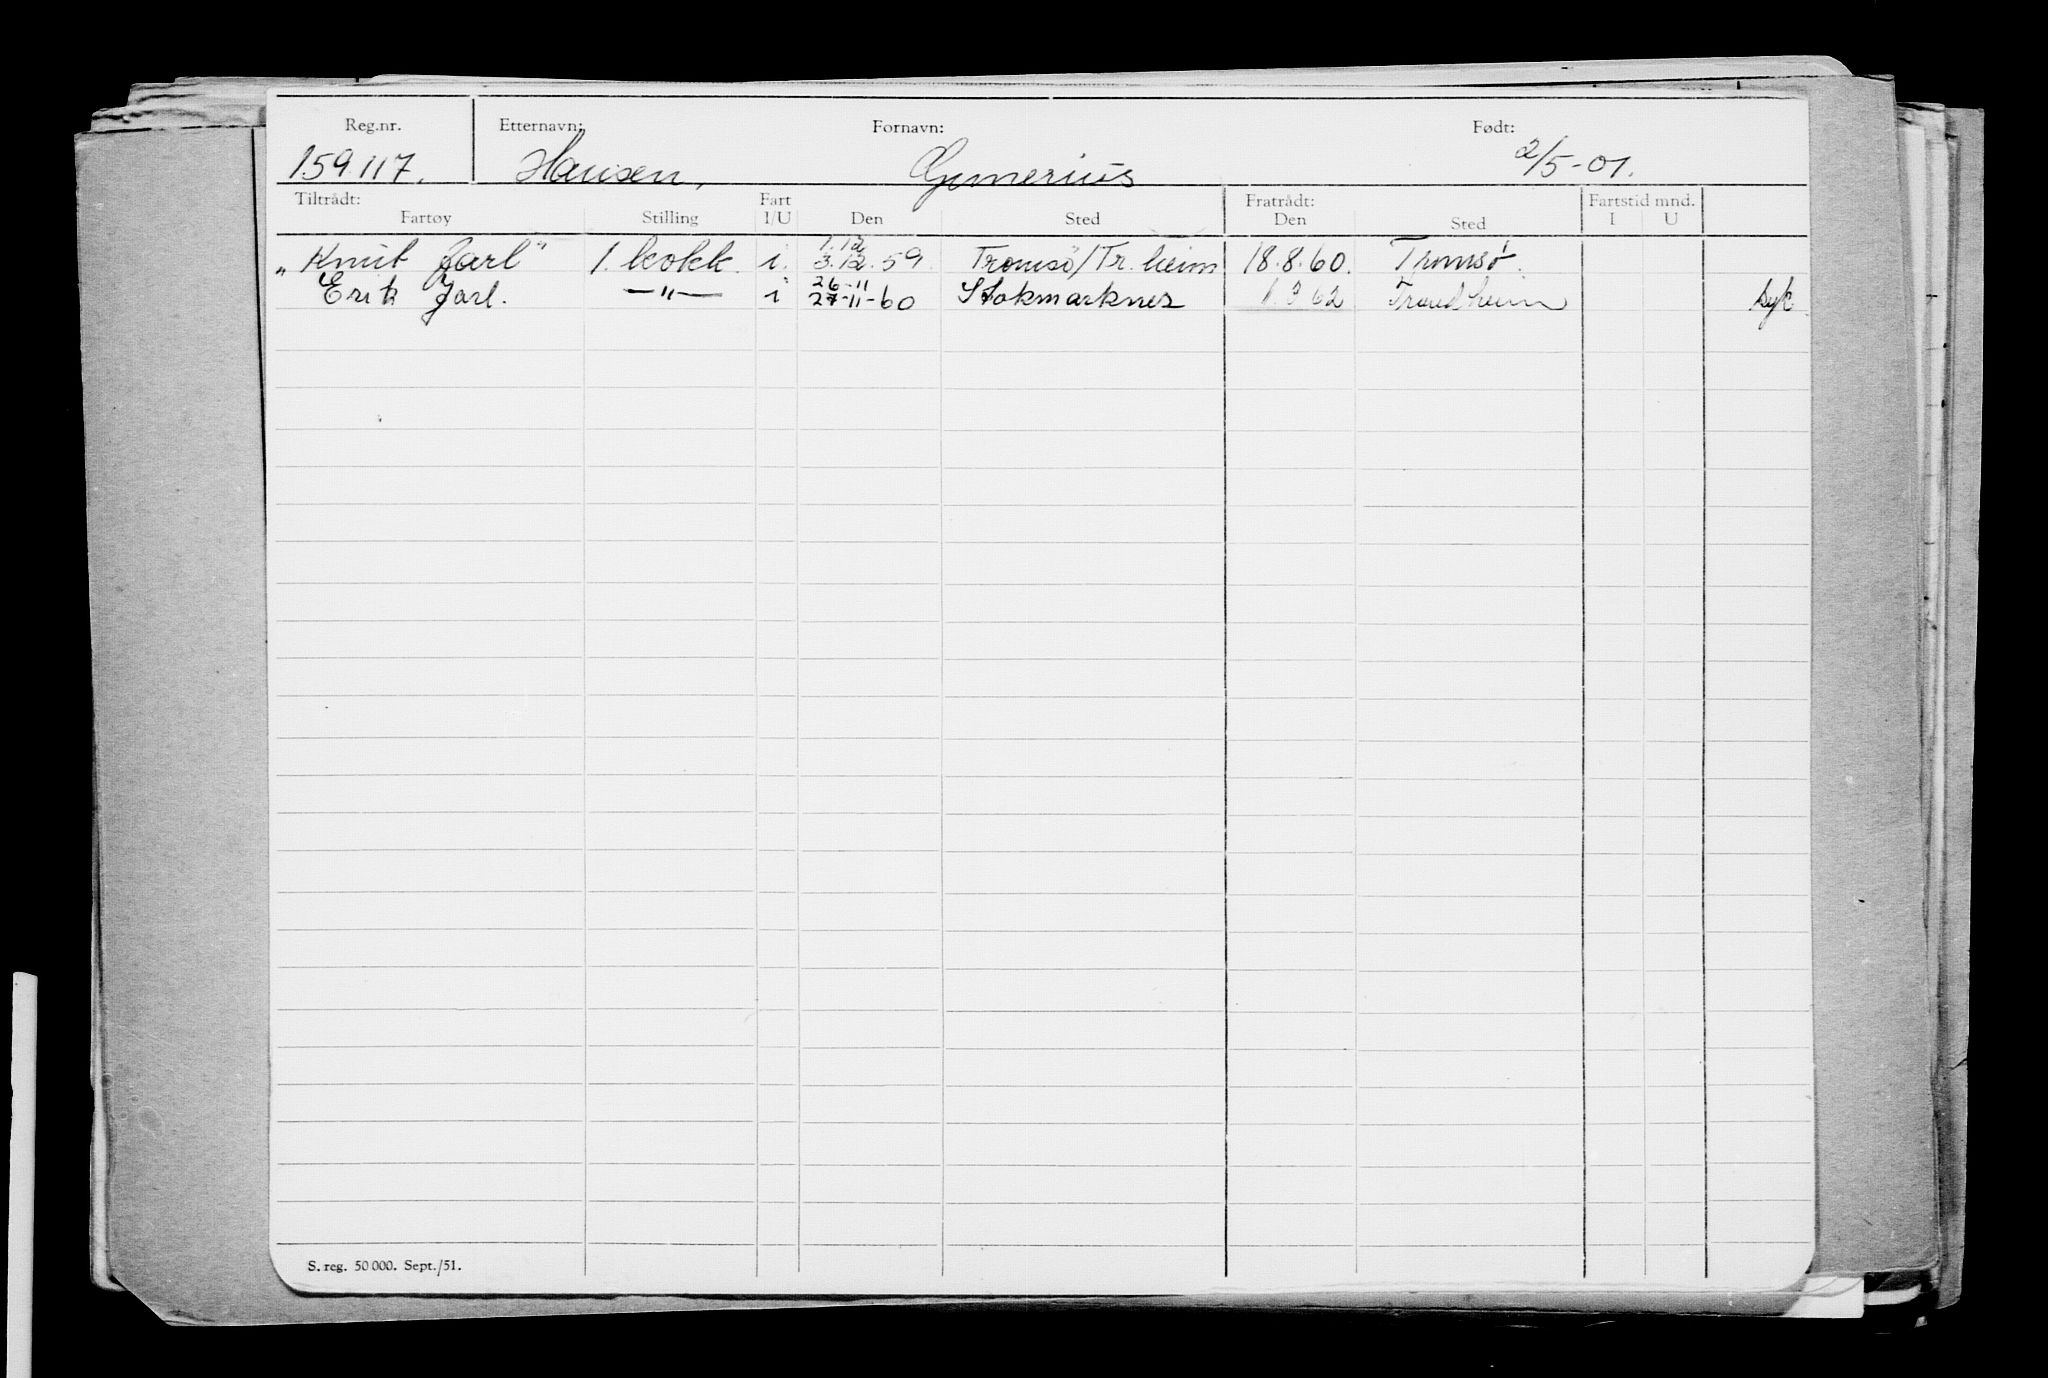 Reg.nr. Etternavn: Fornavn: Født:
159.117. Hansen, Gunerius 2/5-01.
Tiltrådt: Fart Fratrådt: Fartstid mnd.
Fartøy Stilling I/U Den Sted Den Sted I U
1.12
„Knut Jarl" 1. kokk. i. 3.12.59. Tromsö/Tr.heim 18.8.60. Tromsø.
26-11
Erik Jarl. —"— i 27-11-60 Stokmarknes 1.3 62 Trondheim syk.
S. reg. 50 000. Sept./51.